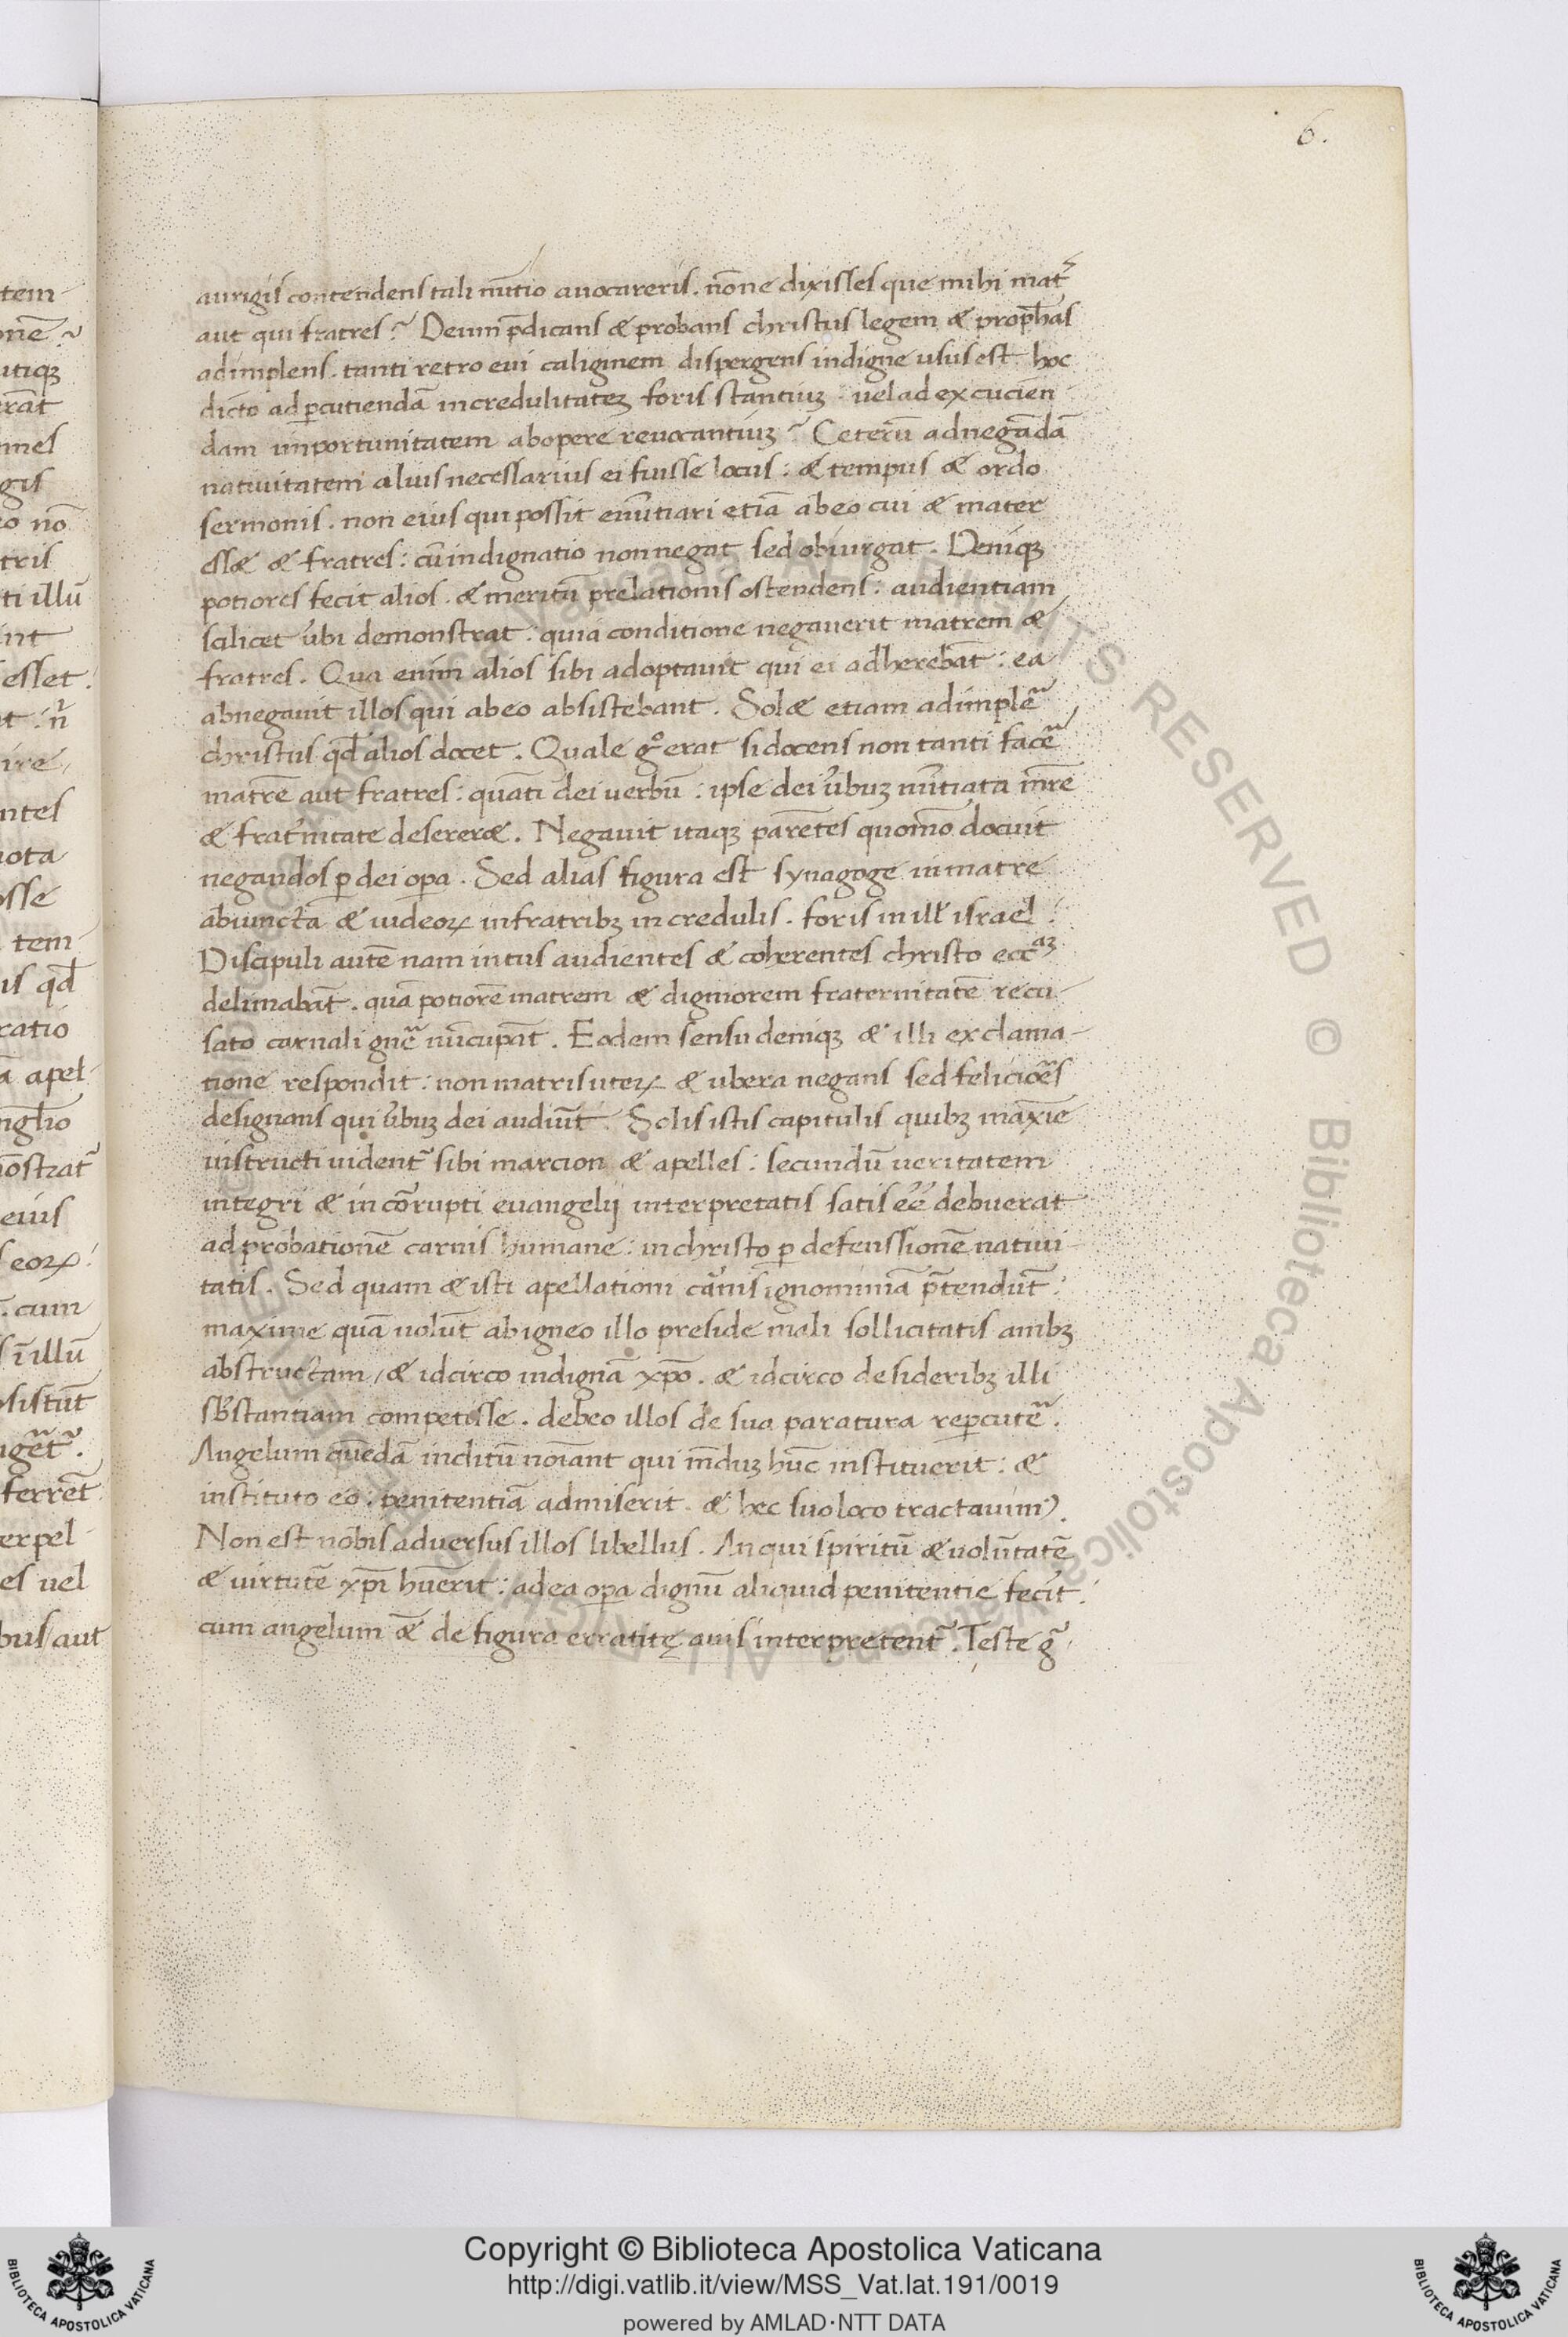 6.
aurigis contendens tali nūtio auocareris. nōne dixisses que mihi mat̄
aut qui fratres? Deum p̄dicans & probans christus legem & proph̄as
adimplens. tanti retro eui caliginem dispergens indigne usus est hoc
dicto ad ꝑcutiendā incredulitateꝫ foris stantiuꝫ uel ad excucien
dam importunitatem ab opere reuocantiuꝫ? Ceterū ad negādā
natiuitatem alius necessarius ei fuisse locus: & tempus & ordo
sermonis. non eius qui possit enūtiari etiā ab eo cui & mater
ess& & fratres: cū indignatio non negat sed obiurgat. Deniqꝫ
potiores fecit alios. & meritū prelationis ostendens: audientiam
scilicet ūbi demonstrat: quia conditione negauerit matrem &
fratres. Qua enim alios sibi adoptauit qui ei adherebāt: ea
abnegauit illos qui ab eo absistebant. Sol& etiam adimplē
christus qđ alios docet. Quale gͦ erat si docens non tanti facē
matrē aut fratres: quāti dei uerbū: ipse dei ūbuꝫ nūtiata mr̄e
& frat̄nitate deserer&. Negauit itaqꝫ parētes quomō docuit
negandos ꝑ dei oꝑa. Sed alias figura est synagoge in matre
abiuncta & iudeoꝝ in fratribꝫ incredulis. foris in ill̄ israel:
Discipuli autē nam intus audientes & coherentes christo ecc̄aꝫ
delimabāt. quā potiorē matrem & digniorem fraternitatē recu-
sato carnali gnē nūcupāt. Eodem sensu deniqꝫ & illi exclama-
tione respondit: non matris uteꝝ & ubera negans sed feliciōes
designans qui ūbuꝫ dei audiūt. Solis istis capitulis quibꝫ maxīe
instructi uident̄ sibi marcion & apelles: secundū ueritatem
integri & incōrupti euangelij interpretatis satis eē debuerat
ad probationē carnis humane: in christo ꝑ defenssionē natiui-
tatis. Sed quam & isti apellationi cārnis ignominiā p̄tendūt:
maxime quā uolūt ab igneo illo preside mali sollicitatis anibꝫ
abstructam, & idcirco indignā xp̄o. & idcirco de sideribꝫ illi
sb̄stantiam competisse. debeo illos de sua paratura reꝑcutē.
Angelum quēdā inclitū noīant qui mūduꝫ hūc instituerit: &
instituto eo. penitentiā admiserit. & hec suo loco tractauimꝰ.
Non est nobis aduersus illos libellus. An qui spiritū & uolūtatē
& uirtutē xp̄i hūerit: ad ea oꝑa dignū aliquid penitentie fecit.
cum angelum &̄ de figura erratitę auis interpretent̄. Teste g̊
Copyright © Biblioteca Apostolica Vaticana
http://digi.vatlib.it/view/MSS_Vat.lat.191/0019
powered by AMLAD·NTT DATA